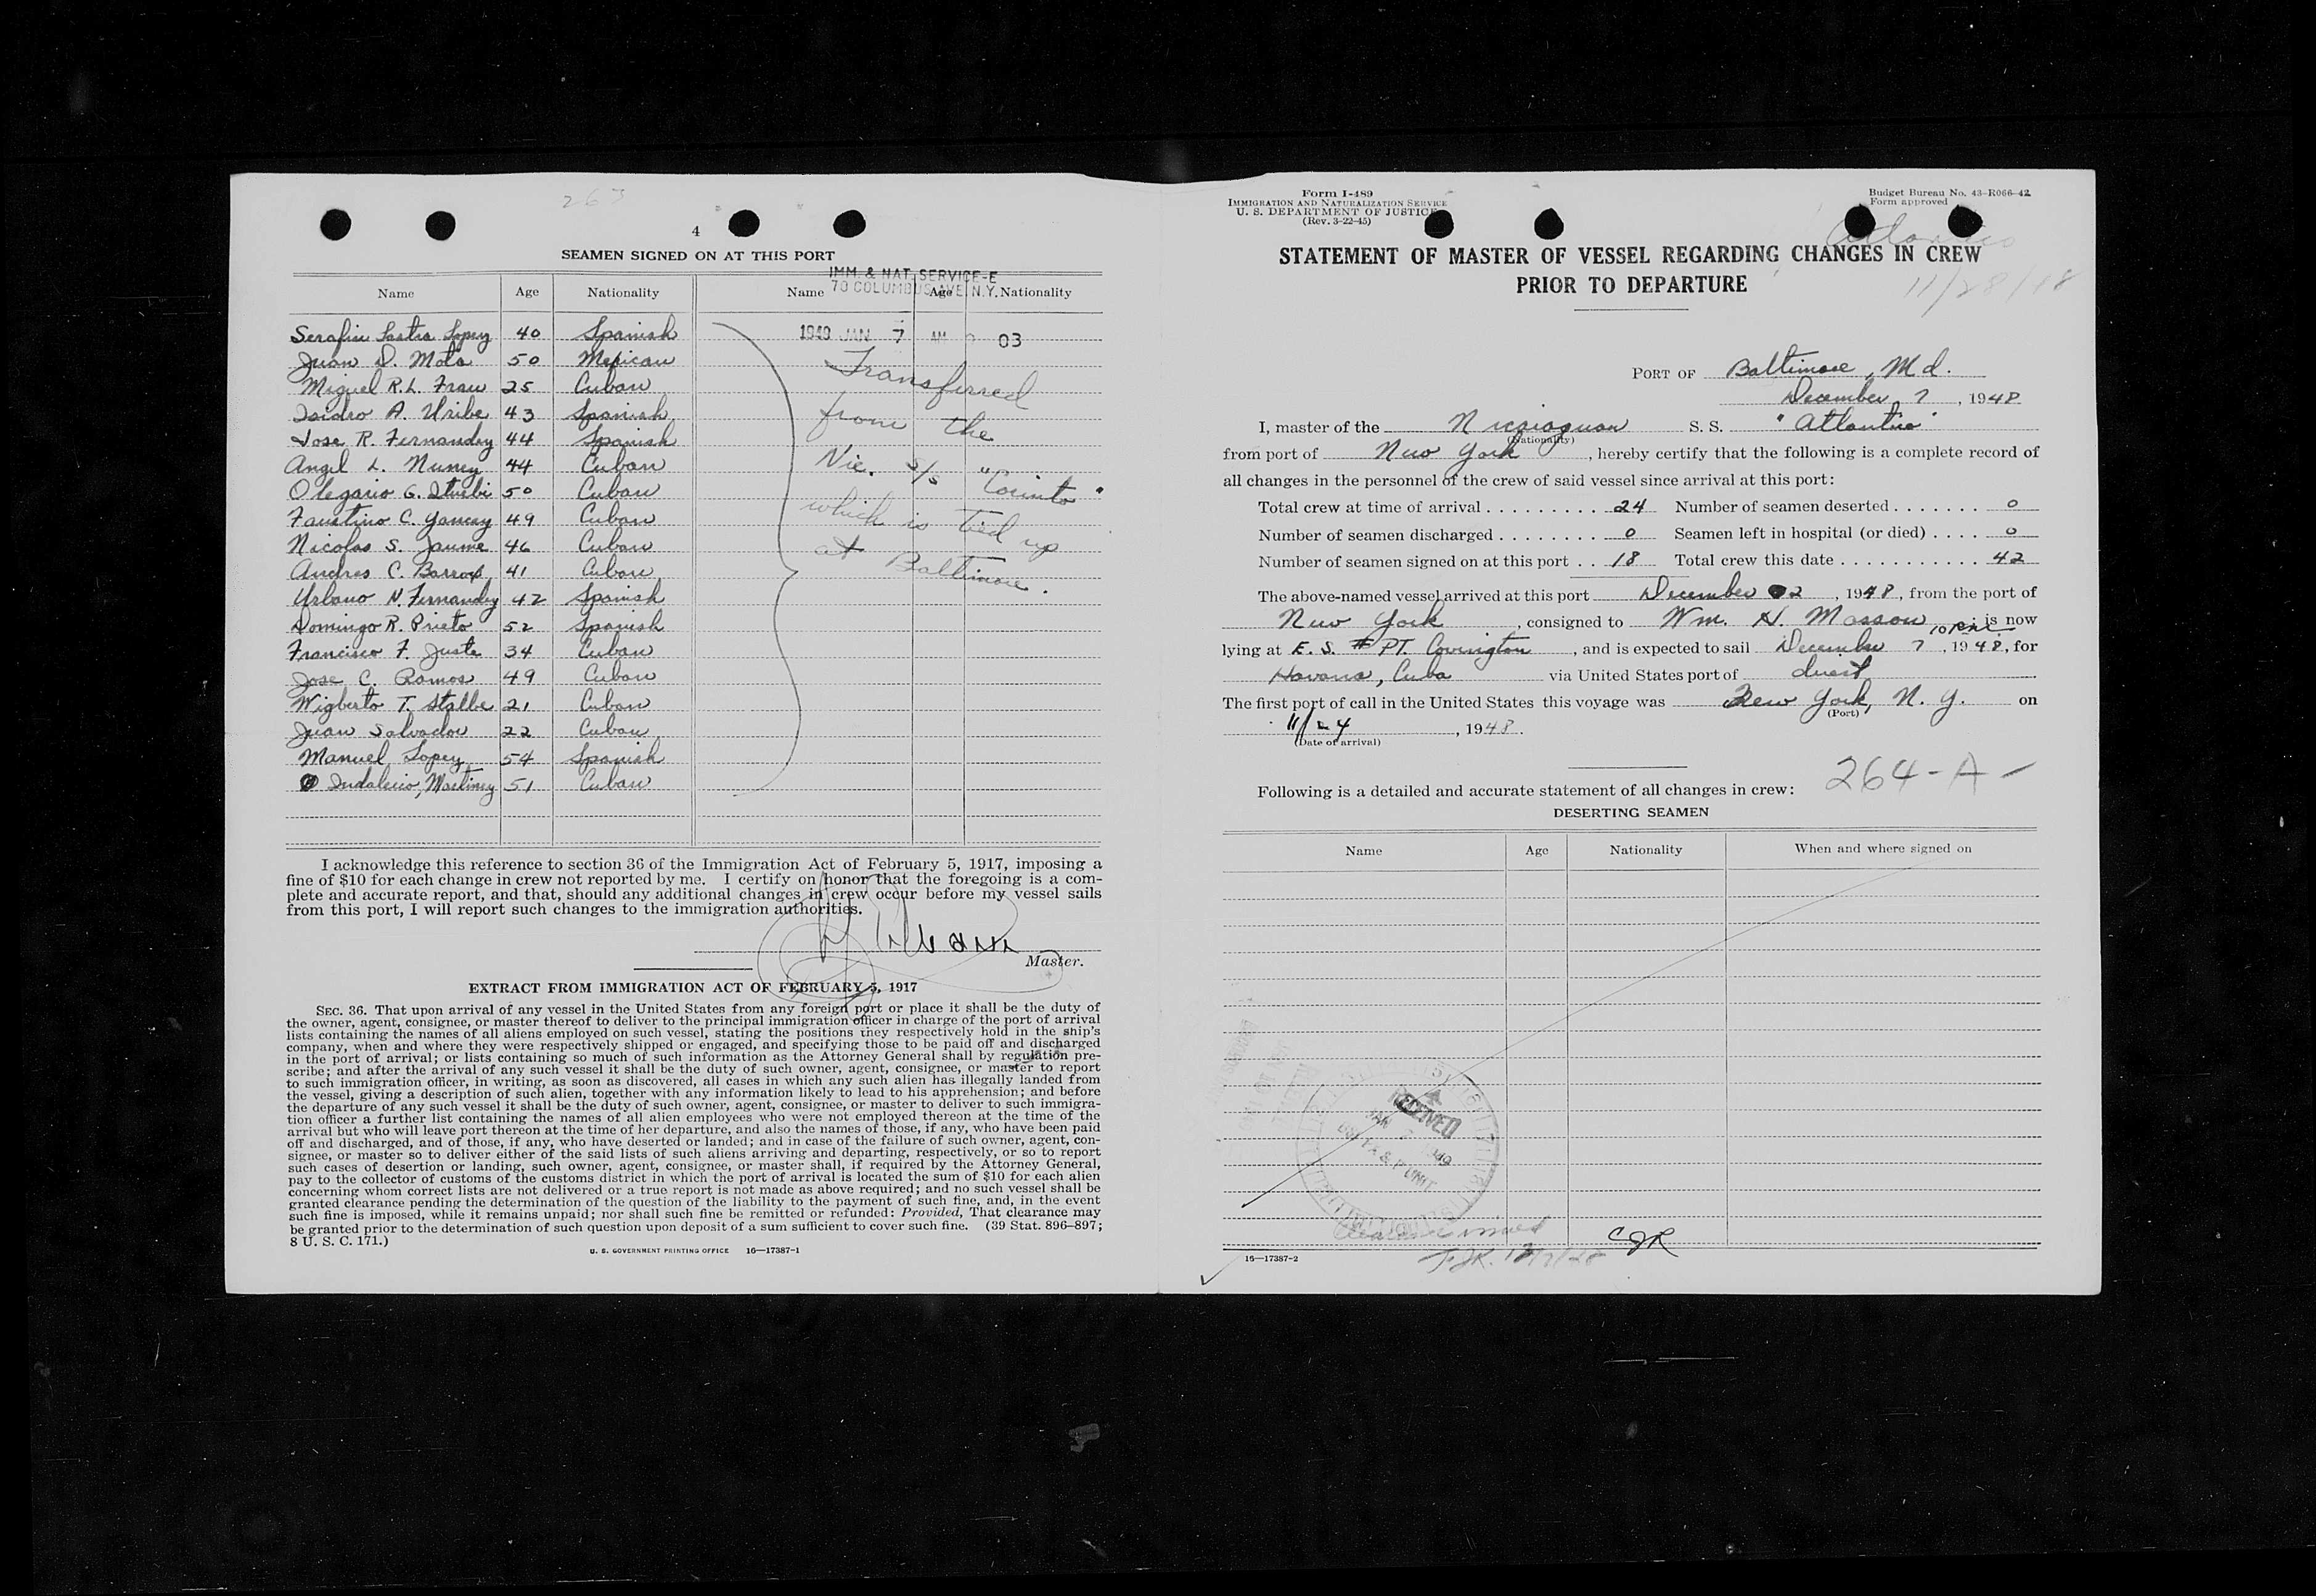 263
4
SEAMEN SIGNED ON AT THIS PORT
IMM. & NAT. SERVICE-E
70 COLUMBUS AVE. N.Y.
Name Age Nationality Name Age Nationality
1949 JAN 7 AM 03
Serafin Sastra Lopez 40 Spanish
Juan D. Mota 50 Mexican
Miguel R.L. Frau 25 Cuban
Isidro A. Uribe 43 Spanish
Jose R. Fernandez 44 Spanish
Angel L. Nunez 44 Cuban
Olegario G. Iturbi 50 Cuban
Faustino C. Yancay 49 Cuban
Nicolas S. Jaume 46 Cuban
Andres C. Barros 41 Cuban
Urbano N. Fernandez 42 Spanish
Domingo R. Prieto 52 Spanish
Francisco F. Juste 34 Cuban
Jose C. Ramos 49 Cuban
Wigberto T. Stalbe 21 Cuban
Juan Salvador 22 Cuban
Manuel Lopez 54 Spanish
Indalecio, Martinez 51 Cuban
Transferred
from the
Nic. S/S "Corinto"
which is tied up
at Baltimore.
I acknowledge this reference to section 36 of the Immigration Act of February 5, 1917, imposing a
fine of $10 for each change in crew not reported by me. I certify on honor that the foregoing is a com-
plete and accurate report, and that, should any additional changes in crew occur before my vessel sails
from this port, I will report such changes to the immigration authorities.
Master.
EXTRACT FROM IMMIGRATION ACT OF FEBRUARY 5, 1917
SEC. 36. That upon arrival of any vessel in the United States from any foreign port or place it shall be the duty of
the owner, agent, consignee, or master thereof to deliver to the principal immigration officer in charge of the port of arrival
lists containing the names of all aliens employed on such vessel, stating the positions they respectively hold in the ship's
company, when and where they were respectively shipped or engaged, and specifying those to be paid off and discharged
in the port of arrival; or lists containing so much of such information as the Attorney General shall by regulation pre-
scribe; and after the arrival of any such vessel it shall be the duty of such owner, agent, consignee, or master to report
to such immigration officer, in writing, as soon as discovered, all cases in which any such alien has illegally landed from
the vessel, giving a description of such alien, together with any information likely to lead to his apprehension; and before
the departure of any such vessel it shall be the duty of such owner, agent, consignee, or master to deliver to such immigra-
tion officer a further list containing the names of all alien employees who were not employed thereon at the time of the
arrival but who will leave port thereon at the time of her departure, and also the names of those, if any, who have been paid
off and discharged, and of those, if any, who have deserted or landed; and in case of the failure of such owner, agent, con-
signee, or master so to deliver either of the said lists of such aliens arriving and departing, respectively, or so to report
such cases of desertion or landing, such owner, agent, consignee, or master shall, if required by the Attorney General,
pay to the collector of customs of the customs district in which the port of arrival is located the sum of $10 for each alien
concerning whom correct lists are not delivered or a true report is not made as above required; and no such vessel shall be
granted clearance pending the determination of the question of the liability to the payment of such fine, and, in the event
such fine is imposed, while it remains unpaid; nor shall such fine be remitted or refunded: Provided, That clearance may
be granted prior to the determination of such question upon deposit of a sum sufficient to cover such fine. (39 Stat. 896-897;
8 U. S. C. 171.)
U. S. GOVERNMENT PRINTING OFFICE 16—17387-1
Form I-489
IMMIGRATION AND NATURALIZATION SERVICE
U. S. DEPARTMENT OF JUSTICE
(Rev. 3-22-45)
Budget Bureau No. 43-R066-42
Form approved
Atlantico
11/28/48
STATEMENT OF MASTER OF VESSEL REGARDING CHANGES IN CREW
PRIOR TO DEPARTURE
PORT OF Baltimore, Md.
December 7, 1948
I, master of the Nicaraguan S. S. "Atlantico"
(Nationality)
from port of New York, hereby certify that the following is a complete record of
all changes in the personnel of the crew of said vessel since arrival at this port:
Total crew at time of arrival 24 Number of seamen deserted 0
Number of seamen discharged 0 Seamen left in hospital (or died) 0
Number of seamen signed on at this port 18 Total crew this date 42
The above-named vessel arrived at this port December 2, 1948, from the port of
New York, consigned to Wm. H. Masson, is now
lying at E. S. # PT. Covington, and is expected to sail December 7 10 PM, 1948, for
Havana, Cuba via United States port of direct.
The first port of call in the United States this voyage was New York, N. Y. on
(Port)
11/24, 1948.
(Date of arrival)
264-A-
Following is a detailed and accurate statement of all changes in crew:
DESERTING SEAMEN
Name Age Nationality When and where signed on
RECEIVED
JAN 1949
CJR
16—17387-2